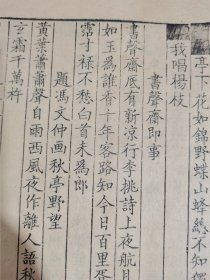 亭下花如錦野蝶山蜂總不知
我唱楊枝
書聲齋即事
書聲齋底有新涼行李挑詩上夜航
如玉為誰香十年客路知今日百里
霑寸祿不愁白首未為郎
題馮文仲畫秋亭野望
黃葉蕭蕭聲自雨西風夜作離人語秋
玄霜千萬杵